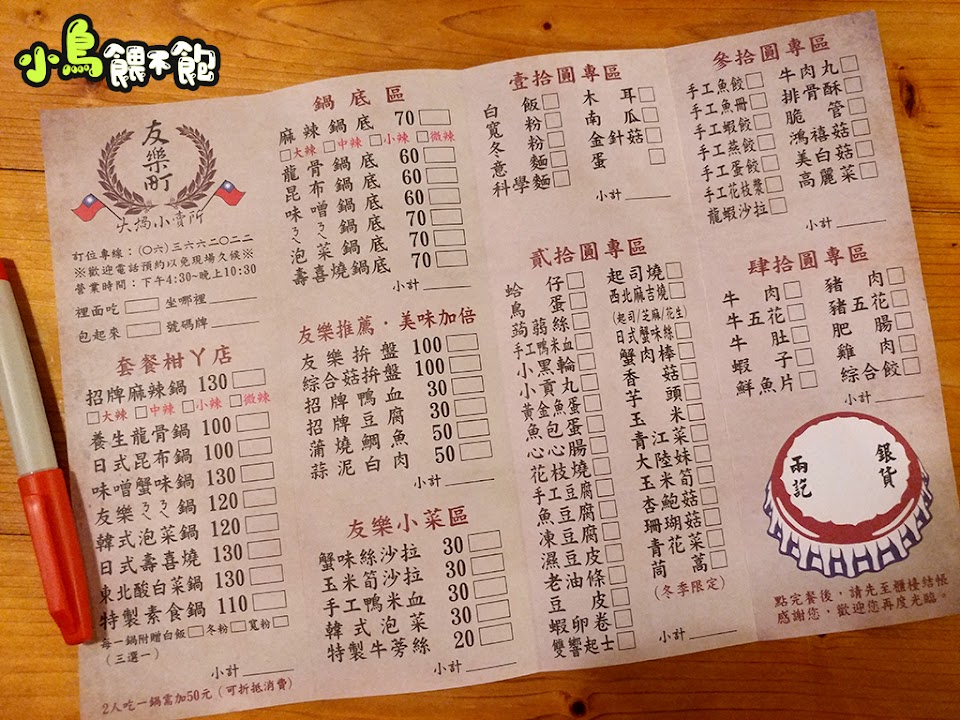 小鳥餵不飽
友樂町
火鍋小賣所
訂位專線：(〇六)三六六二〇二二
※歡迎電話預約以免現場久候※
營業時間：下午4:30~晚上10:30
裡面吃 坐哪裡
包起來 號碼牌
套餐柑ㄚ店
招牌麻辣鍋 130
大辣 中辣 小辣 微辣
養生龍骨鍋 100
日式昆布鍋 100
味噌蟹味鍋 130
友樂ㄋㄟㄋㄟ鍋 120
韓式泡菜鍋 120
日式壽喜燒 130
東北酸白菜鍋 130
特製素食鍋 110
每一鍋附贈白飯 冬粉 寬粉
(三選一)
小計
2人吃一鍋需加50元(可折抵消費)
鍋底區
麻辣鍋底 70
大辣 中辣 小辣 微辣
龍骨鍋底 60
昆布鍋底 60
味噌鍋底 60
ㄋㄟㄋㄟ鍋底 70
泡菜鍋底 70
壽喜燒鍋底 70
小計
友樂推薦·美味加倍
友樂拚盤 100
綜合菇拚盤 100
招牌鴨血 30
招牌豆腐 30
蒲燒鯛魚 50
蒜泥白肉 50
小計
友樂小菜區
蟹味絲沙拉 30
玉米筍沙拉 30
手工鴨米血 30
韓式泡菜 30
特製牛蒡絲 20
小計
壹拾圓專區
白飯
寬粉
冬粉
意麵
科學麵
木耳
南瓜
金針菇
蛋
小計
貳拾圓專區
蛤仔
鳥蛋
蒟蒻絲
手工鴨米血
小黑輪
小貢丸
黃金魚蛋
魚包蛋
心心腸
花枝燒
手工豆腐
魚豆腐
凍豆腐
濕豆皮
老油條
豆皮
蝦卵卷
雙響起士
起司燒
西北麻吉燒
(起司/芝麻/花生)
日式蟹味絲
蟹肉棒
香菇
芋頭
玉米
青江菜
大陸妹
玉米筍
杏鮑菇
珊瑚菇
青花菜
茼蒿
(冬季限定)
小計
參拾圓專區
手工魚餃
手工魚冊
手工蝦餃
手工燕餃
手工蛋餃
手工花枝漿
龍蝦沙拉
牛肉丸
排骨酥
脆管
鴻禧菇
美白菇
高麗菜
小計
肆拾圓專區
牛肉
牛五花
牛肚
蝦子
鮮魚片
豬肉
豬五花
肥腸
雞肉
綜合餃
小計
銀貨
兩訖
點完餐後，請先至櫃檯結帳
感謝您，歡迎您再度光臨。